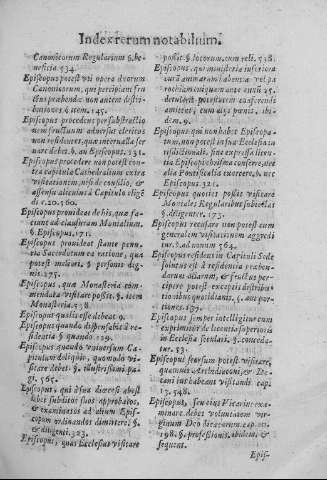 Index rerum notabilium.
Canonicorum Regularium §. beneficia 534.
Episcopus potest vti opera duorum
Canonicorum, qui percipiant fructus præbendæ non autem distributiones §. item. 145.
Episcopus procedens per substractionem fructuum aduersus clericos
non residentes, quæ interualla seruare debet. §. an Episcopus. 131.
Episcopus procedere non potest contra capitula Cathedralium extra
visitationem, nisi de consilio, &
assensu alicuius à Capitulo
20. 160.
Episcopus prouideat de his, quæ faciunt ad clausuram Monialium.
§ Episcopus. 171.
Episcopus prouideat stante penuria Sacerdotum ea ratione, qua
potest melius. § personis dignis. 175.
Episcopus, qui Monasteria commendata visitare possit. §. item
Monasteria. 78
Episcopus qualis esse debeat 9.
Episcopus quando dispensabit à residentia § quando. 129.
Episcopus quando vniuersum Capitulum deliquit, quomodo visitare debet. §. illustrissimi pag. 565.
Episcopus, qui ipsa diœcesi abest
debet subditos suos approbatos,
& examinatos ad alium Episcopum ordinandos dimittere; §.
& diligenti. 303.
Episcopus, quas Ecclesias visitare
possit. §. locorum, cum reli. 518.
Episcopus, qui ministeria inferiora
curâ animarum habentia vel parochiam nequeunt ante annũ 25.
detulerit potestatem conferendi
amittet; cum alijs panis, ibidem. 9.
Episcopus qui non habet Episcopatum, non potest in sua Ecclesia iurisdictionali, sine expressa licentia Episcopi
alia Pontificalia exercere, §. nec
Episcopus. 321.
Episcopus quoties possit visitare
Moniales Regularibus subiectas
§. diligenter. 173.
Episcopus recusare non potest cum
generalem visitationem aggreditur. §. ad nonum 564.
Episcopus residens in Capitulis Sede
solutus est à residentia præbendarum aliarum, & fructus percipere potest exceptis distributionibus quotidianis. §. aut portiones. 137.
Episcopus semper intelligitur cum
exprimitur de licentia superioris
in Ecclesia seculari. §. concedatur. 53.
Episcopus seorsum potest visitare,
quamuis Archidiaconi, & Decani ius habeant visitandi. cap.
13. 548.
Episcopus, seu eius Vicarius examinare debet voluntatem virginum Deo dicatarum. cap.
198. §. professionis, abilem, &
sequent.
Epis-